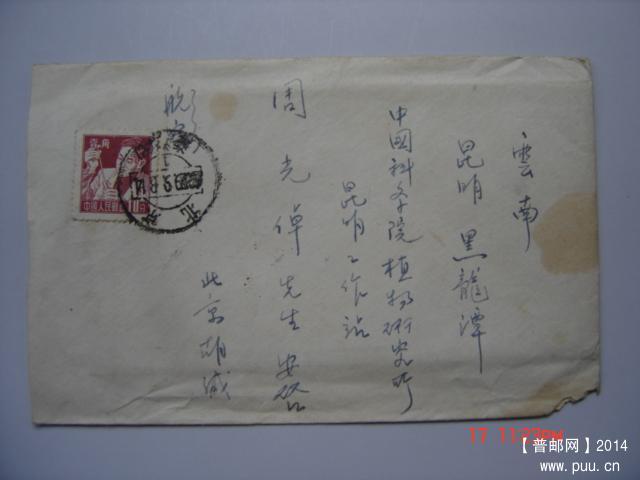 雲南
昆明 黑龍潭
中國科學院植物研究所
昆明工作站
周光倬先生 安啓
北京胡缄
航空
壹角
中國人民郵政
北京
17 11:23PM
【普邮网】2014
www.puu.cn